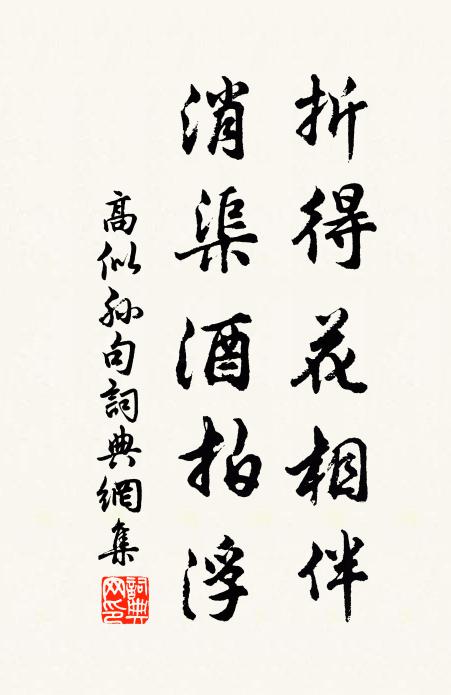 折得花相伴
消渠酒拍浮
高似孫句詞典網集
詞典网印